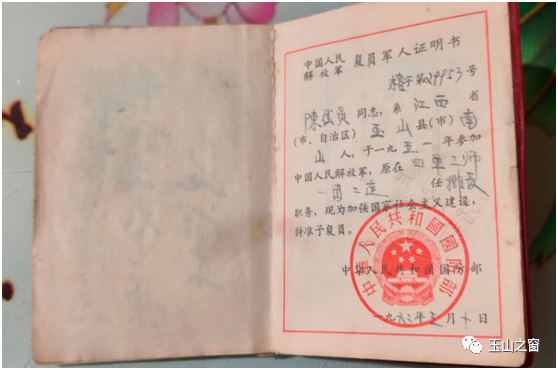 中国人民
解放军 复员军人证明书
字第029953号
陈岱员同志，系江西省
(市、自治区)玉山县(市)南
山人，于一九五一年参加
中国人民解放军，原在四军二师
一团二连任
职务，现为加强国家社会主义建设，
特准予复员。
中华人民共和国国防部
一九六三年三月十日
中华人民共和國國防部
玉山之窗